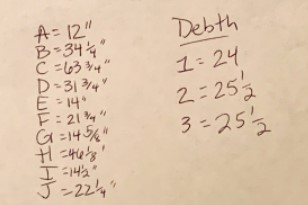 A = 12"
B = 34 1/4"
C = 63 3/4"
D = 31 3/4"
E = 14"
F = 21 3/4"
G = 14 5/8"
H = 46 1/8"
I = 14 1/2"
J = 22 1/4"
Debth
1 = 24
2 = 25 1/2
3 = 25 1/2